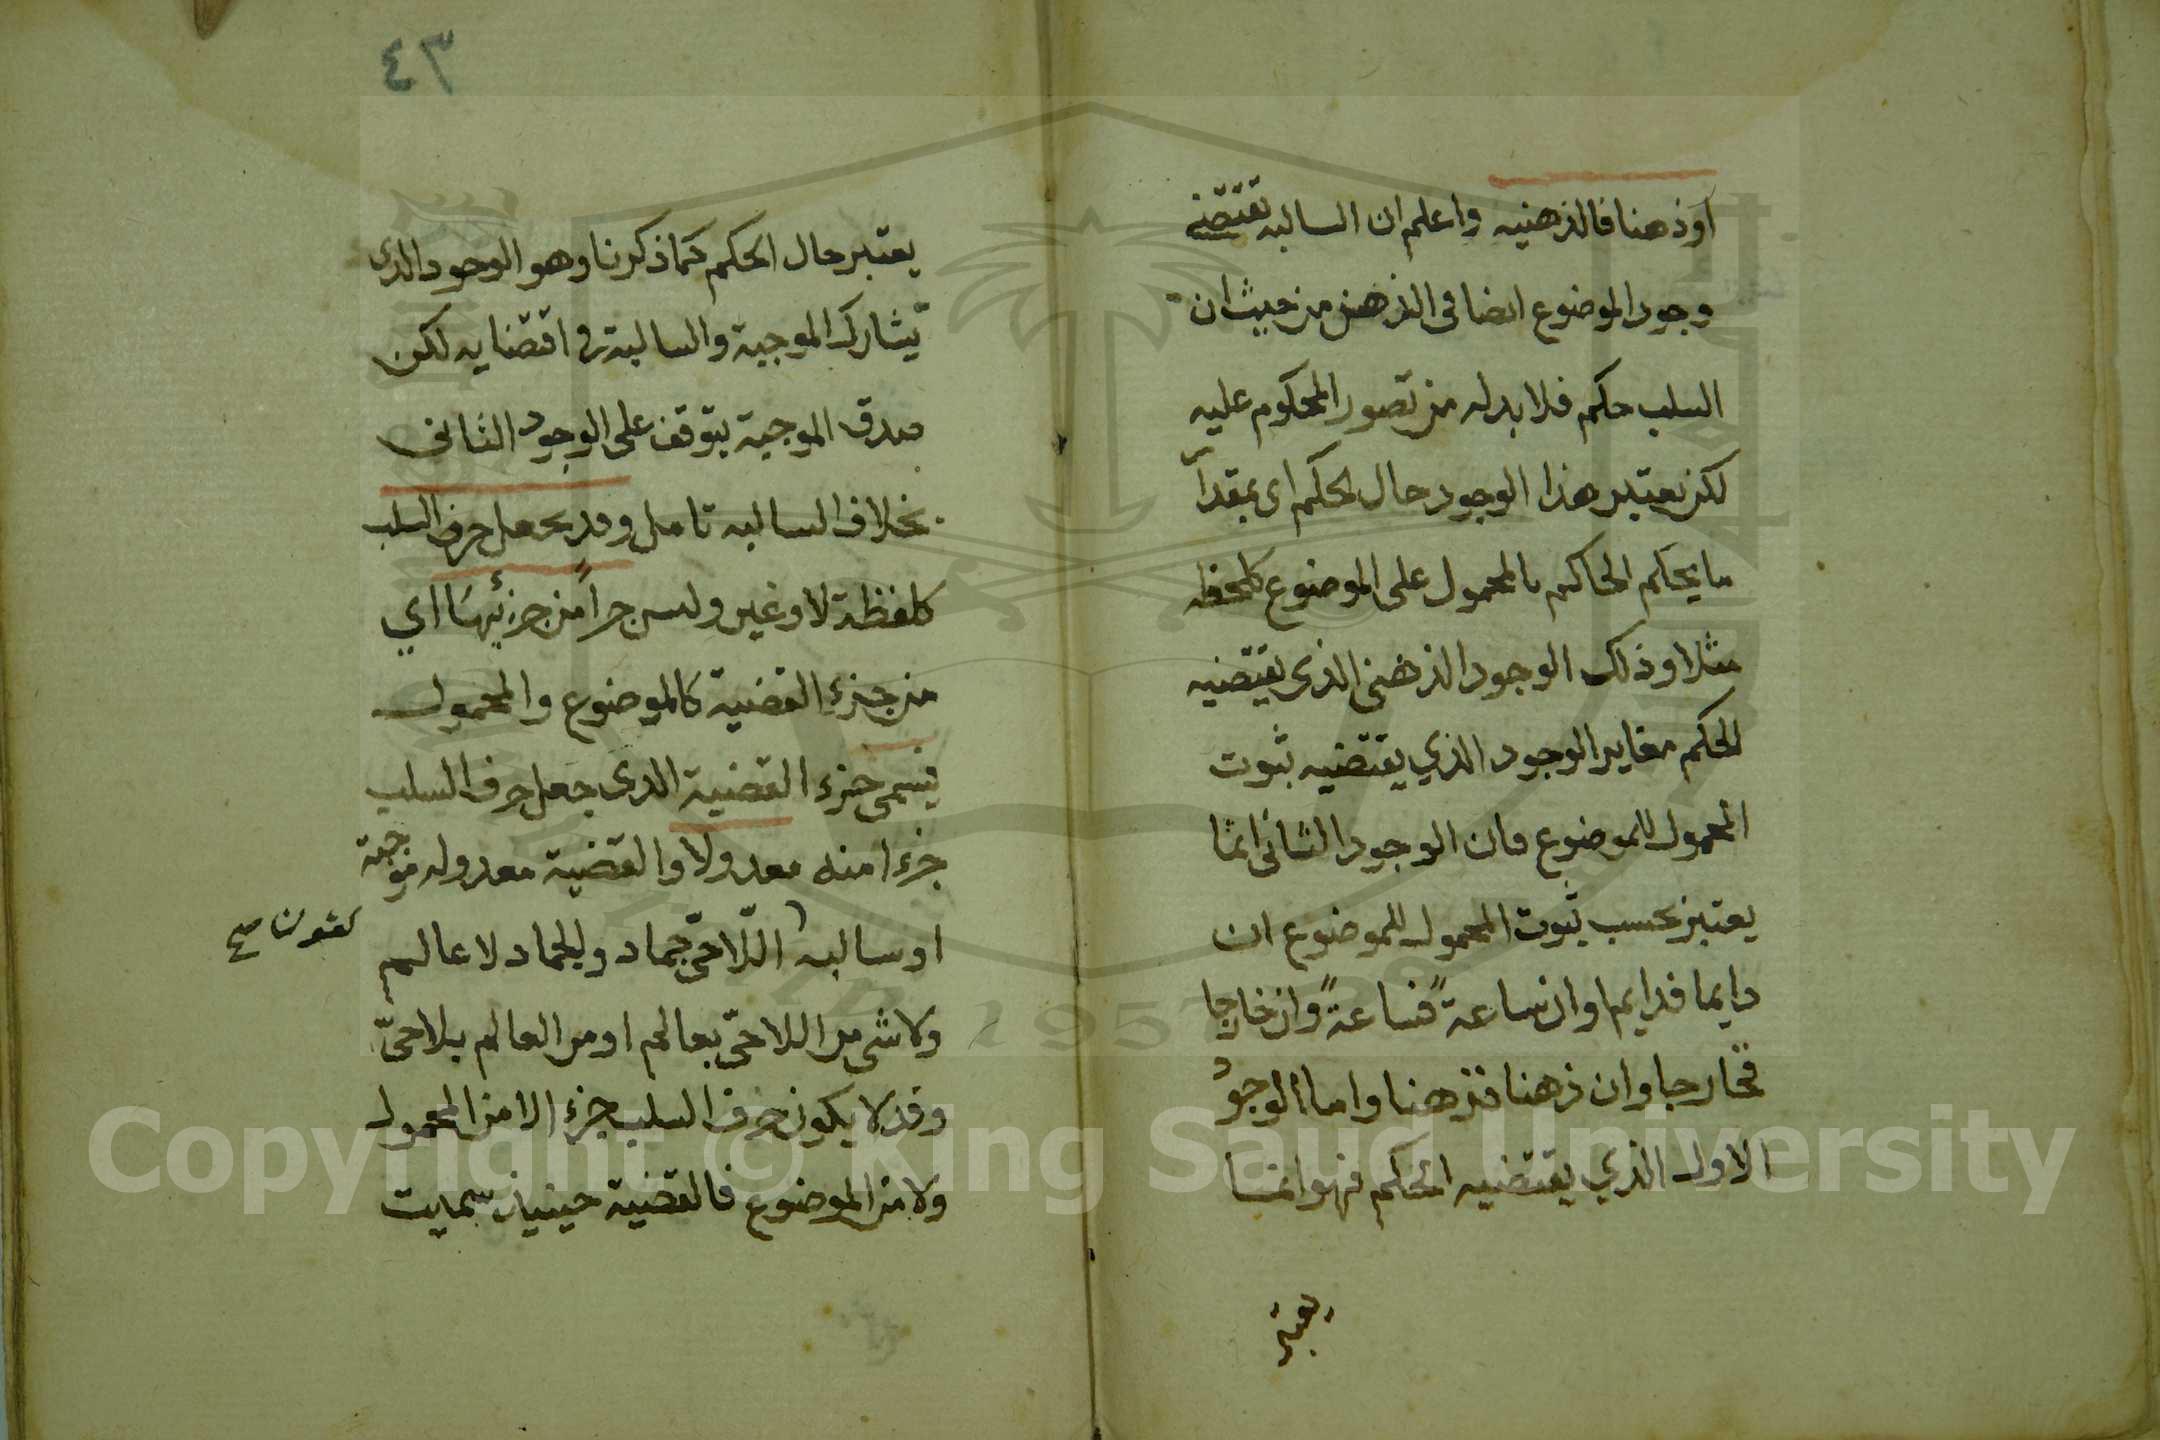 اوذهنا فالذهنيه واعلم ان السالبه تقتضي
وجود الموضوع ايضا في الذهن من حيث ان
السلب حكم فلا بد له من تصور المحكوم عليه
لكن يعتبر هذا الوجود حال الحكم اي بمقدار
ما يحكم الحاكم بالمحمول على الموضوع كلحظه
مثلا وذلك الوجود الذهني الذي يقتضيه
الحكم مغاير الوجود الذي يقتضيه ثبوت
المحمول للموضوع فان الوجود الثاني انما
يعتبر بحسب ثبوت المحمول للموضوع ان
دايما فدايما وان ساعة فساعة وان خارجا
فخارجا وان ذهنا فذهنا واما الوجود
الاول الذي يقتضيه الحكم فهو انما
يعتبر
٤٣
يعتبر حال الحكم كما ذكرنا وهو الوجود الذي
يشارك الموجبة والسالبة في اقتضايه لكن
صدق الموجبة يتوقف على الوجود الثاني
بخلاف السالبه تامل وقد يجعل حرف السلب
كلفظة لا وغير وليس جزأ من جزئيها اي
من جزء القضية كالموضوع والمحمول
فيسمى جزء القضية الذي جعل حرف السلب
جزءا منه معدولا والقضية معدوله موجبة
او سالبه اللاحي جماد والجماد لا عالم
كقولنا صح
ولا شي من اللاحي بعالم او من العالم بلاحي
وقد لا يكون حرف السلب جزء الا من المحمول
ولا من الموضوع فالقضية حينيذ سميت
Copyright © King Saud University
1957